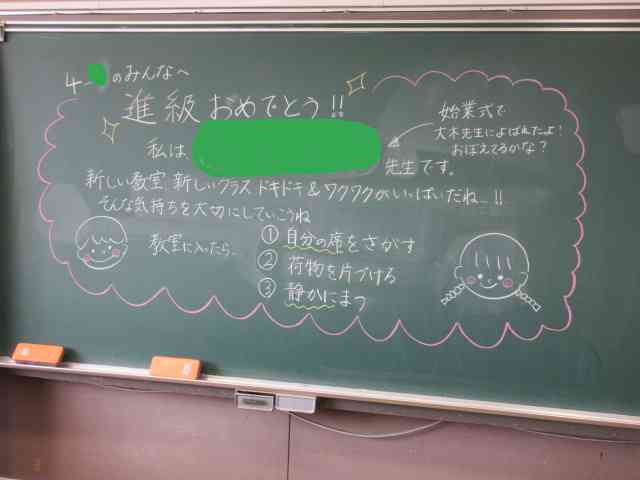 4-のみんなへ
進級おめでとう!!
私は、先生です。
始業式で
大木先生によばれたよ!
おぼえてるかな?
新しい教室、新しいクラス、ドキドキ&ワクワクがいっぱいだね…!!
そんな気持ちを大切にしていこうね
教室に入ったら…
①自分の席をさがす
②荷物を片づける
③静かにまつ